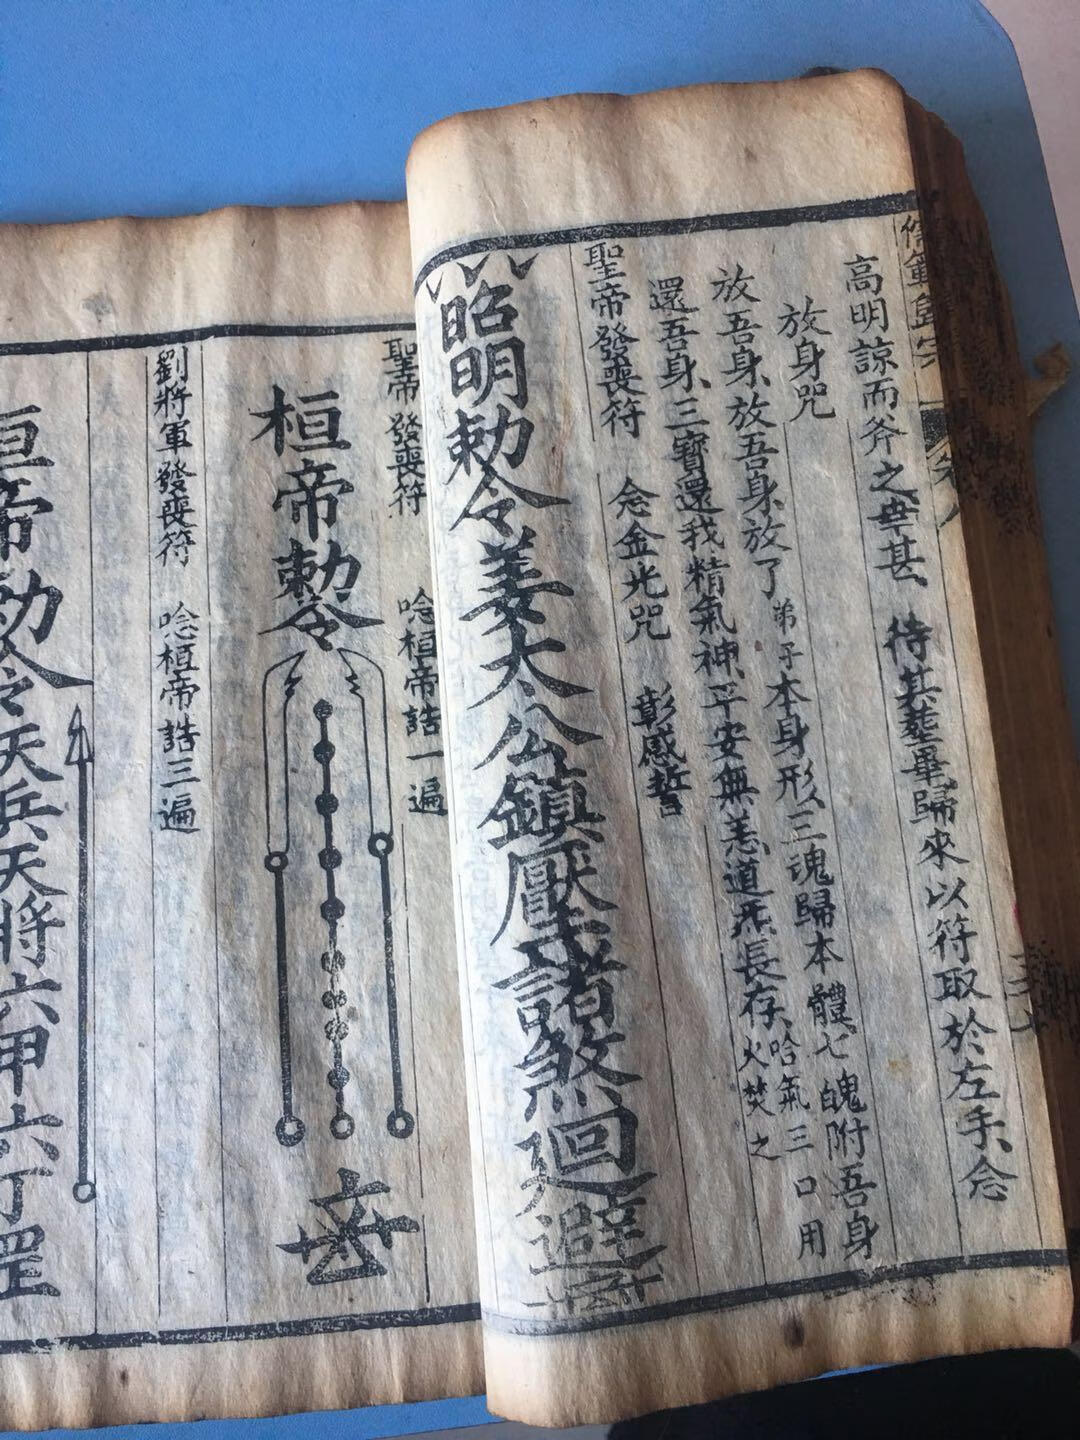 高明諒而斧之毋甚、待其葬畢歸來以符取於左手、念
放身咒
放吾身、放吾身放了弟子本身形、三魂歸本體、七魄附吾身
還吾身、三寶還我精氣神、平安無恙、道炁長存、哈氣三口用火焚之
聖帝發喪符 念金光咒 彰感誓
昭明勅令姜太公鎮壓諸煞迴避
聖帝發喪符 唸桓帝誥一遍
桓帝勅令
劉將軍發喪符 唸桓帝誥三遍
桓帝勅令天兵天將六甲六丁罡